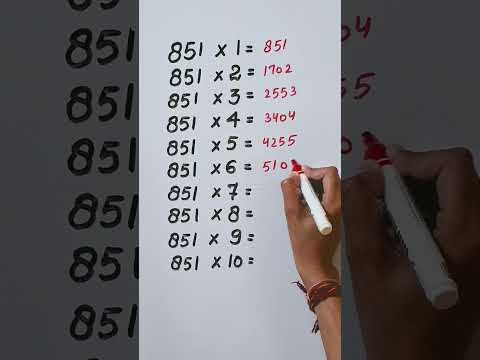 851 x 1 = 851
851 x 2 = 1702
851 x 3 = 2553
851 x 4 = 3404
851 x 5 = 4255
851 x 6 = 510
851 x 7 =
851 x 8 =
851 x 9 =
851 x 10 =